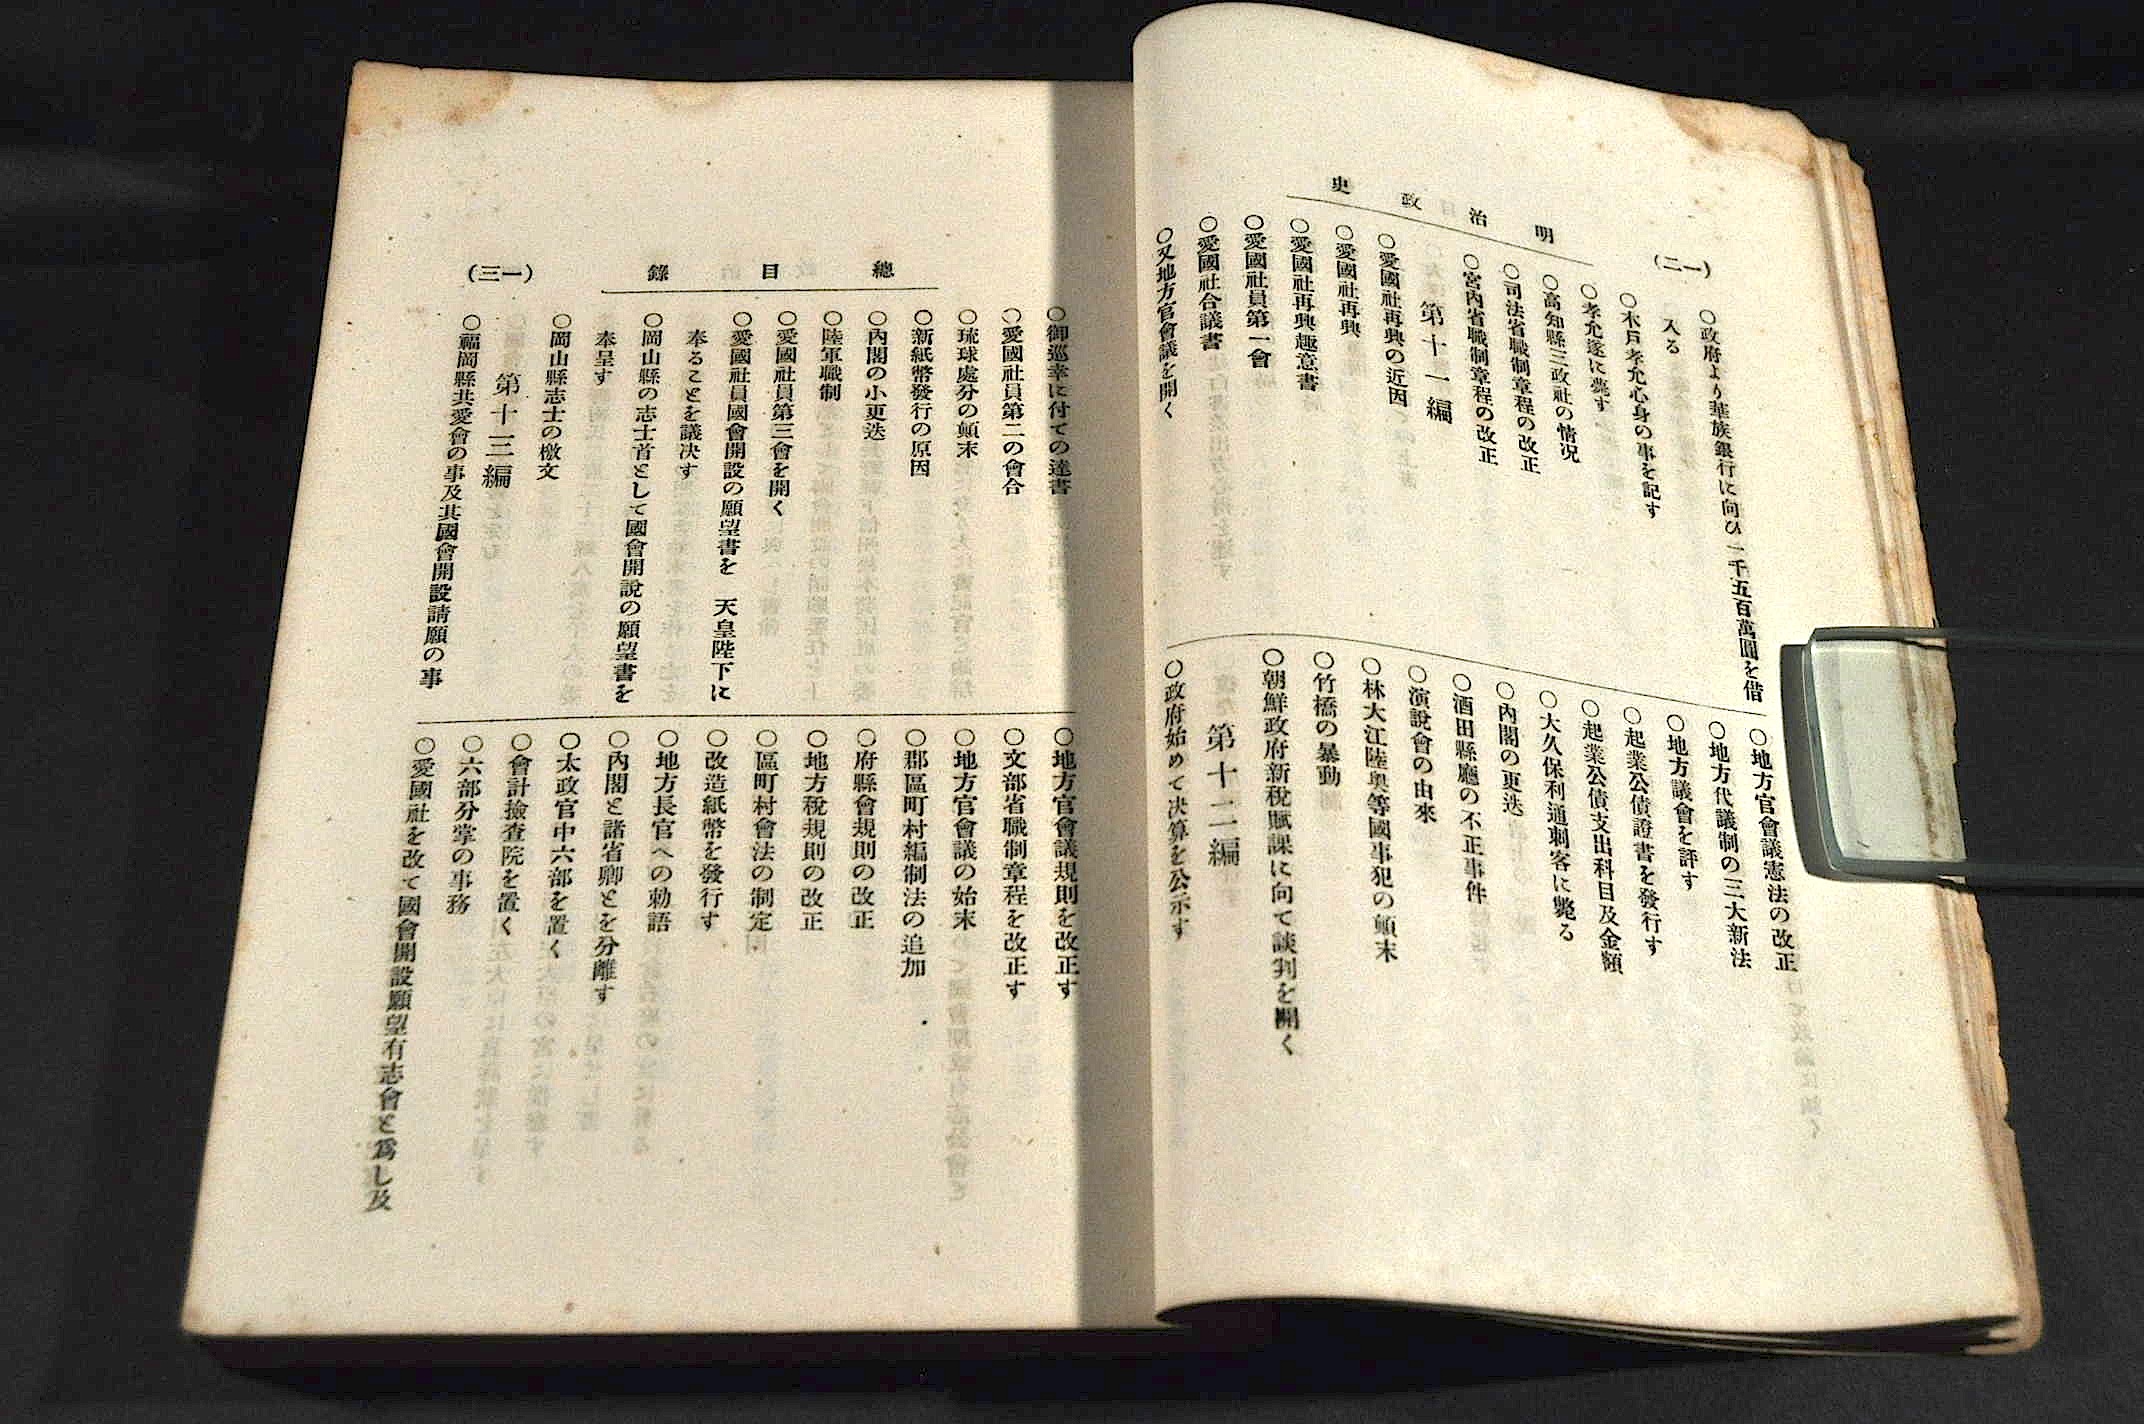 明治政史
(一二)
○政府より華族銀行に向ひ一千五百萬圓を借
入る
○木戸孝允心身の事を記す
○孝允遂に薨す
○高知縣三政社の情況
○司法省職制章程の改正
○宮內省職制章程の改正
第十一編
○愛國社再興の近因
○愛國社再興
○愛國社再興趣意書
○愛國社員第一會
○愛國社合議書
○又地方官會議を開く
○地方官會議憲法の改正
○地方代議制の三大新法
○地方議會を評す
○起業公債證書を發行す
○起業公債支出科目及金額
○大久保利通刺客に斃る
○內閣の更迭
○酒田縣廳の不正事件
○演說會の由來
○林大江陸奧等國事犯の顛末
○竹橋の暴動
○朝鮮政府新稅賦課に向て談判を開く
第十二編
○政府始めて決算を公示す
總目錄
(一三)
○御巡幸に付ての達書
○愛國社員第二の會合
○琉球處分の顛末
○新紙幣發行の原因
○內閣の小更迭
○陸軍職制
○愛國社員第三會を開く
○愛國社員國會開設の願望書を 天皇陛下に
奉ることを議決す
○岡山縣の志士首として國會開說の願望書を
奉呈す
○岡山縣志士の檄文
第十三編
○福岡縣共愛會の事及其國會開設請願の事
○地方官會議規則を改正す
○文部省職制章程を改正す
○地方官會議の始末
○郡區町村編制法の追加
○府縣會規則の改正
○地方稅規則の改正
○區町村會法の制定
○改造紙幣を發行す
○地方長官への勅語
○內閣と諸省卿とを分離す
○太政官中六部を置く
○會計撿查院を置く
○六部分掌の事務
○愛國社を改て國會開設願望有志會と爲し及